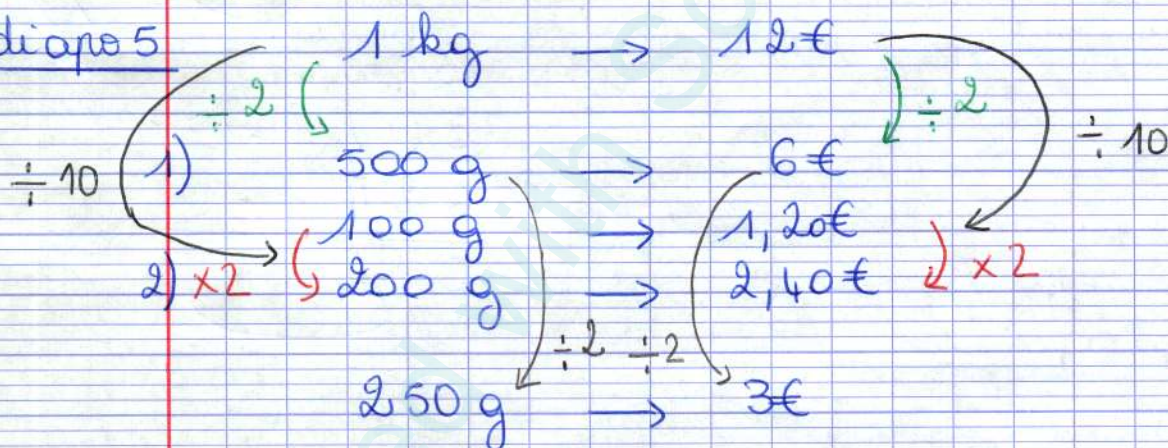 diapo 5 1 kg → 12€
÷ 2 ÷ 2
÷ 10
÷ 10 1) 500 g → 6€
100 g → 1,20€
2) ×2 200 g → 2,40€ ×2
÷2 ÷2
250 g → 3€